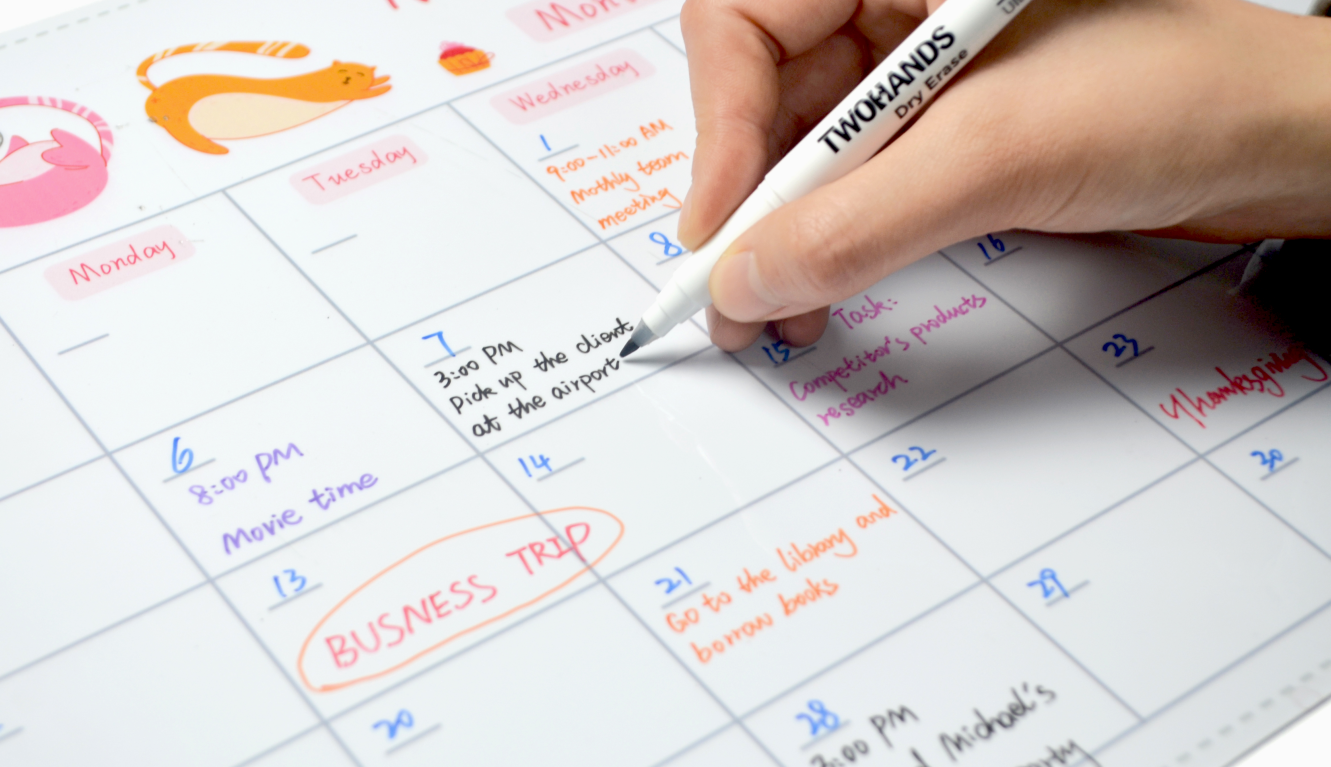 Mon
Wednesday
Tuesday
Monday
TWOHANDS
Dry Erase
1
9:00-11:00 AM
Mothly team
meeting
7
3:00 PM
Pick up the client
at the airport
8
6
8:00 PM
Movie time
14
15
Task:
Competitor's products
research
16
13
BUSNESS TRIP
21
Go to the library and
borrow books
22
23
Thanksgiving
20
28
3:00 PM
Michael's
29
30